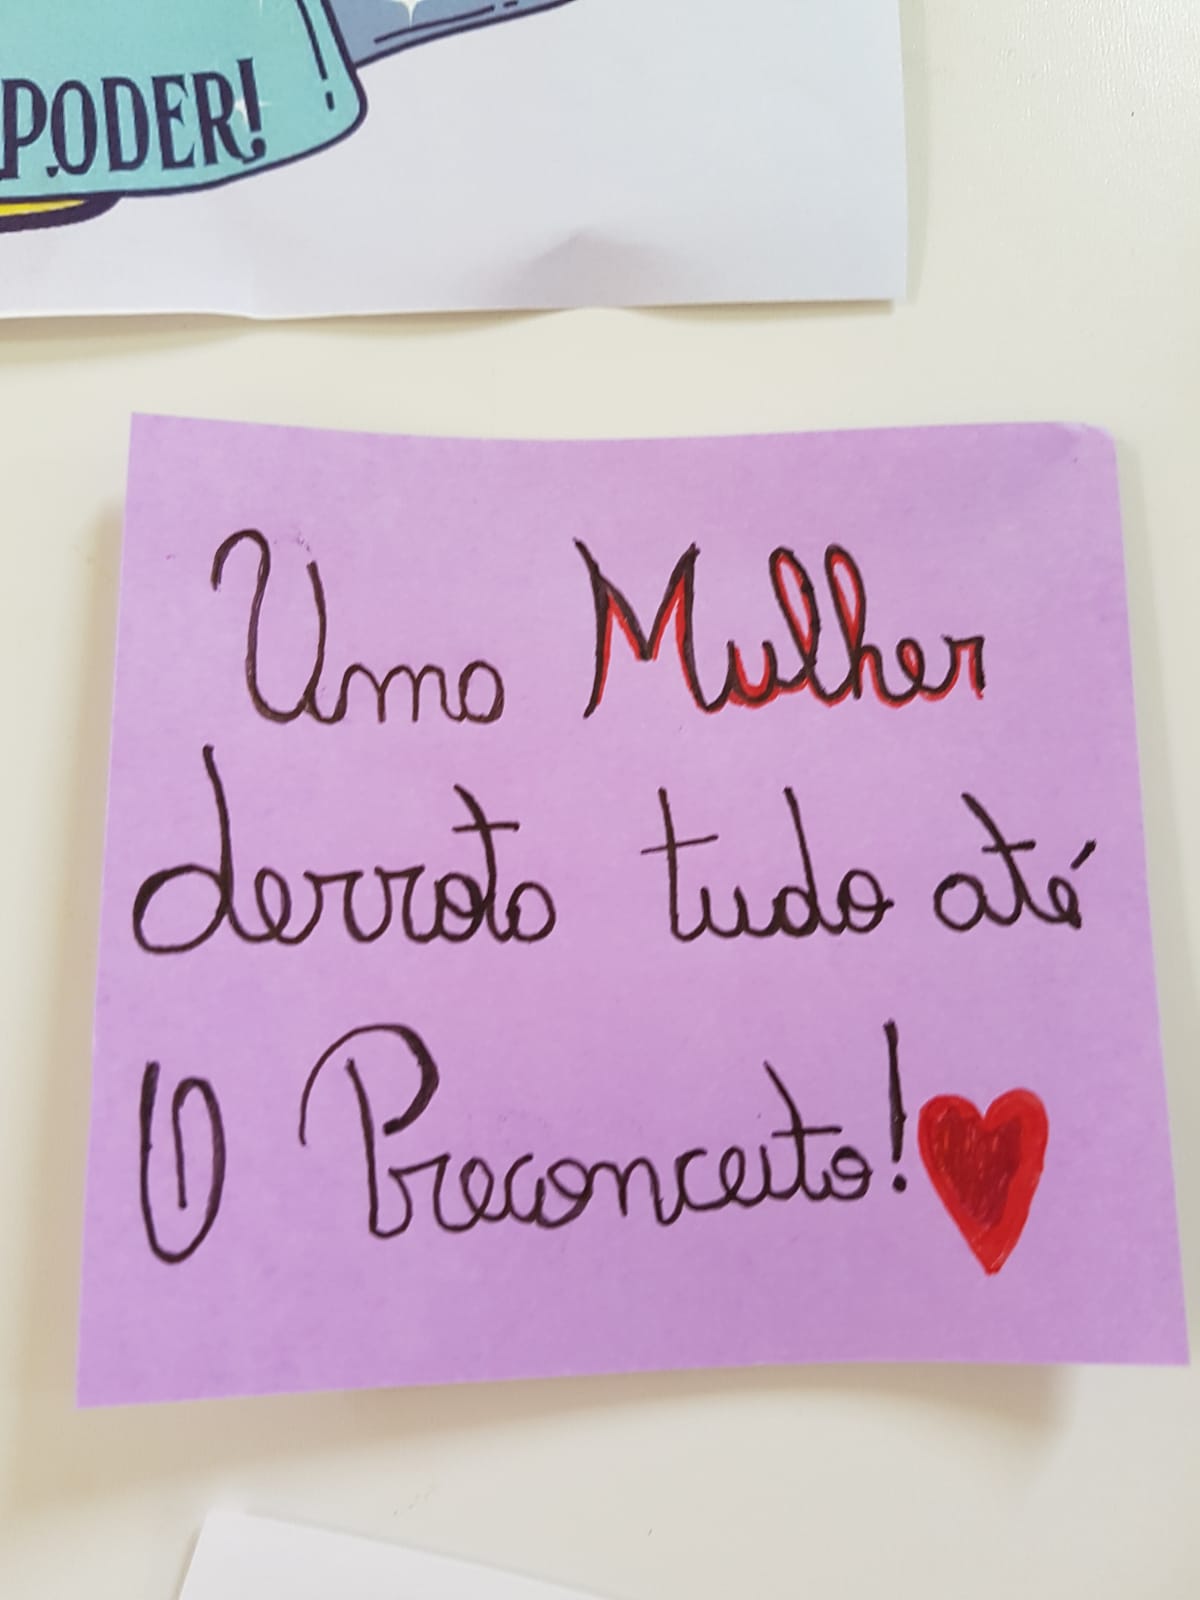 PODER!
Uma Mulher
derrota tudo até
O Preconceito!